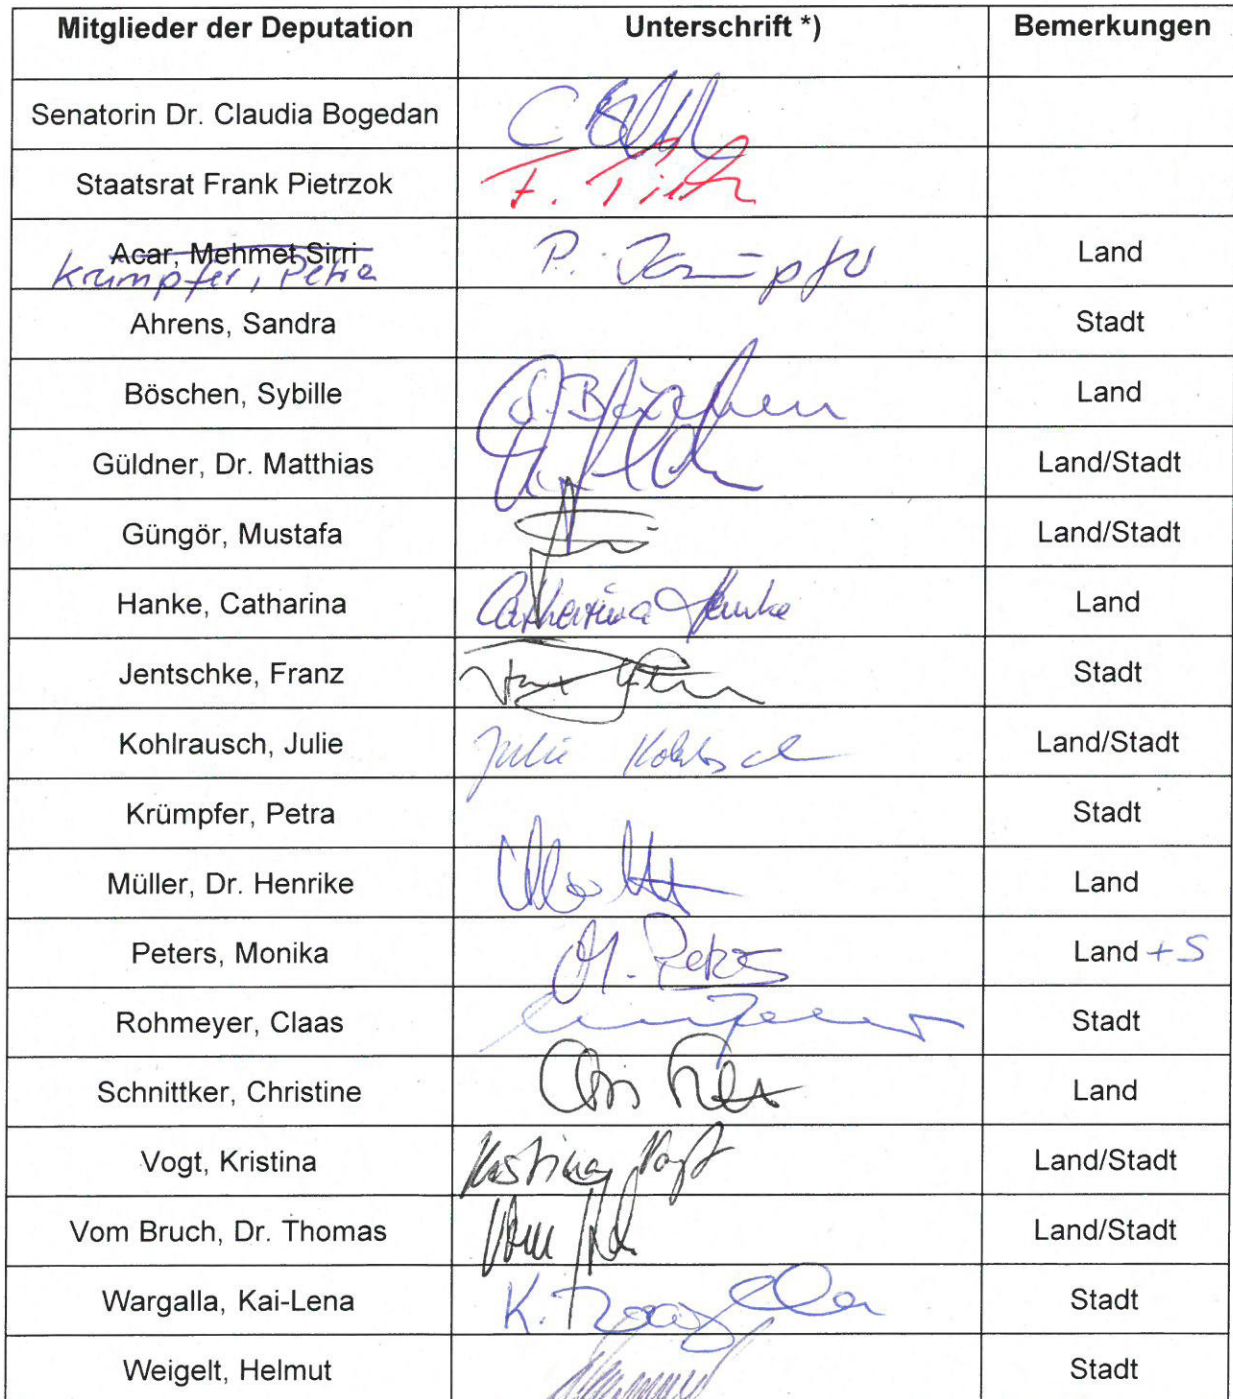 Mitglieder der Deputation Unterschrift *) Bemerkungen
Senatorin Dr. Claudia Bogedan
Staatsrat Frank Pietrzok F.
Acar, Mehmet Sirri P. Krümpfer Land
Krümpfer, Petra
Ahrens, Sandra Stadt
Böschen, Sybille S. Böschen Land
Güldner, Dr. Matthias Land/Stadt
Güngör, Mustafa Land/Stadt
Hanke, Catharina Catharina Hanke Land
Jentschke, Franz Stadt
Kohlrausch, Julie Julie Land/Stadt
Krümpfer, Petra Stadt
Müller, Dr. Henrike Land
Peters, Monika M. Peters Land + S
Rohmeyer, Claas Stadt
Schnittker, Christine Land
Vogt, Kristina Kristina Vogt Land/Stadt
Vom Bruch, Dr. Thomas Land/Stadt
Wargalla, Kai-Lena K. Wargalla Stadt
Weigelt, Helmut Stadt